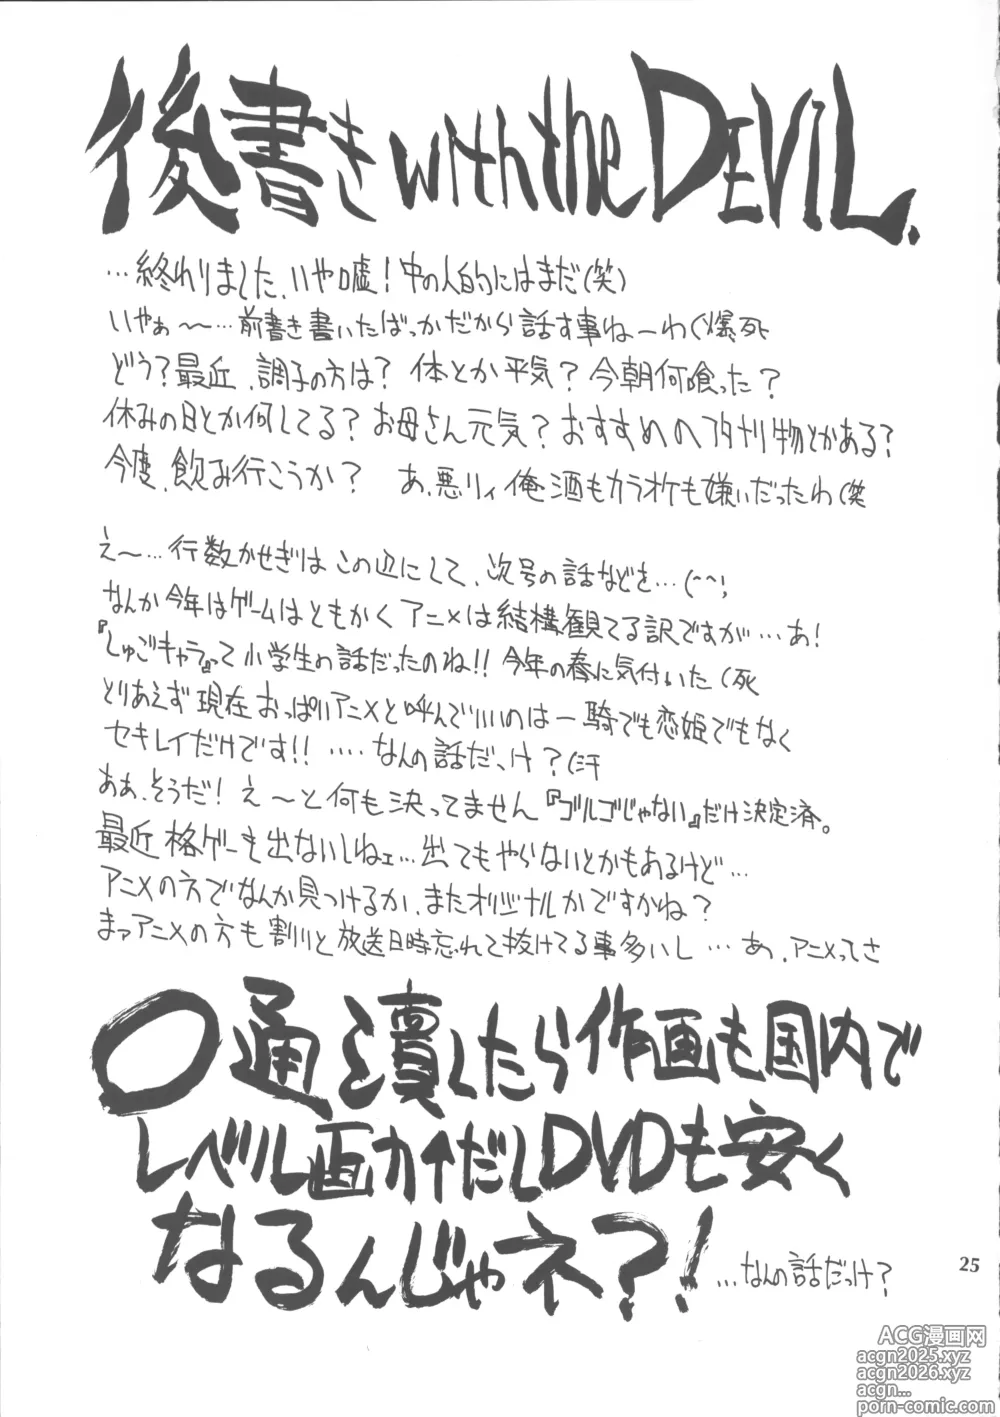 後書き with the DEVIL.
…終わりました、いや嘘!中の人的にはまだ(笑)
いやぁ〜…前書き書いたばっかだから話す事ねーわ(爆死
どう?最近、調子の方は? 体とか平気?今朝何喰った?
休みの日とか何してる?お母さん元気?おすすめのフタナリ物とかある?
今度、飲み行こうか? あ、悪リィ俺酒もカラオケも嫌いだったわ(笑
え〜…行数かせぎはこの辺にして、次号の話などを…(^^;
なんか今年はゲームはともかくアニメは結構観てる訳ですが…あ!
『しゅごキャラ』って小学生の話だったのね!!今年の春に気付いた(死
とりあえず現在おっぱいアニメと呼んでいいのは一騎でも恋姫でもなく
セキレイだけです!! ‥‥なんの話だっけ?(汗
ああ、そうだ!え〜と何も決ってません『ゴルゴじゃない』だけ決定済。
最近格ゲーも出ないしねェ…出てもやらないとかもあるけど…
アニメの方でなんか見つけるか、またオリジナルかですかね?
まァアニメの方も割りと放送日時忘れて抜けてる事多いし…あ、アニメってさ
〇通を潰したら作画も国内で
レベル画力↑だしDVDも安く
なるんじゃネ?!
…なんの話だっけ?
25
ACG漫画网
acgn2025.xyz
acgn2026.xyz
acgn...
porn-comic.com